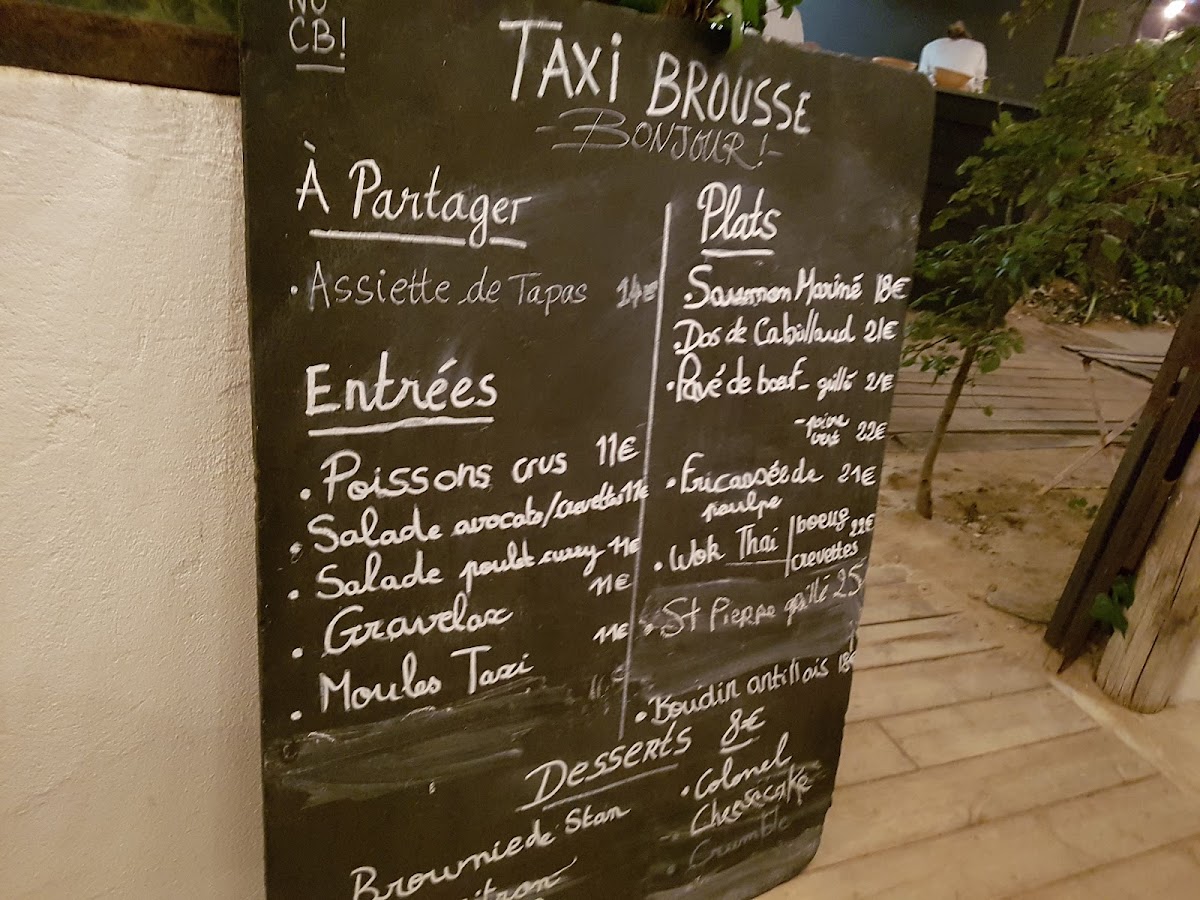 NO
CB!
TAXI BROUSSE
- BONJOUR! -
À Partager
. Assiette de Tapas 14€
Entrées
. Poissons crus 11€
. Salade avocats/crevettes 11€
. Salade poulet curry 11€
. Gravelax 11€
. Moules Taxi 11€
Plats
. Saumon Mariné 18€
. Dos de Cabillaud 21€
. Pavé de bœuf - grillé 21€
- poivre
vert 22€
. Fricassée de 21€
poulpe
. Wok Thaï | boeuf
crevettes 22€
. St Pierre grillé 25
. Boudin antillais 18€
Desserts 8€
Brownie de Stan
itron
. Colonel
. Cheesecake
. Crumble